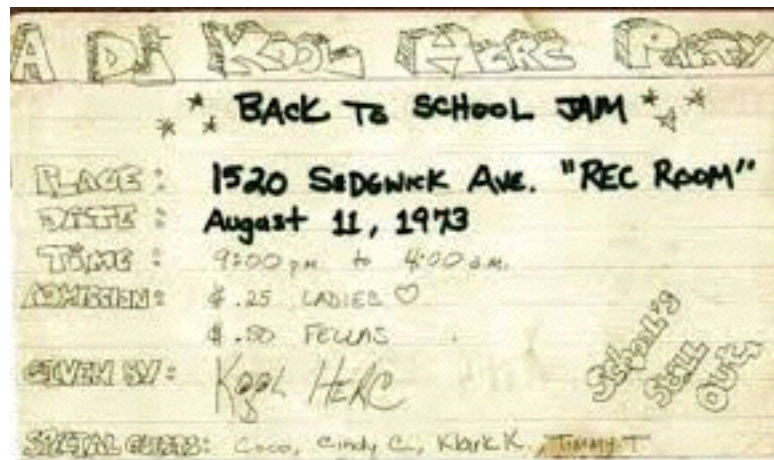 A DJ KOOL HERC PARTY
BACK To SCHOOL JAM
PLACE: 1520 SEDGWICK AVE. "REC ROOM"
DATE: August 11, 1973
TIME: 9:00 pm to 4:00 a.m.
ADMISSION: $.25 LADIES ♡
$.50 FELLAS
School's Still Out,
GIVEN BY: Kool HERC
SPECIAL GUESTS: Coco, Cindy C., Klark K., TIMMY T.